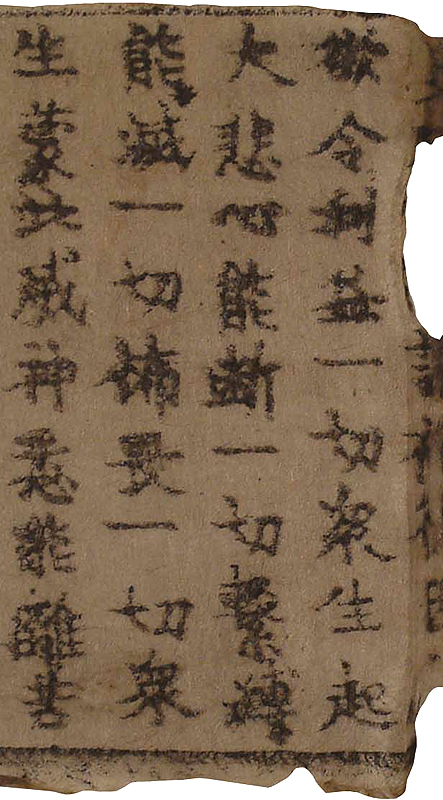 欲令利益一切衆生起
大悲心能斷一切繫縛
能滅一切怖畏一切衆
生蒙此威神悉能離苦